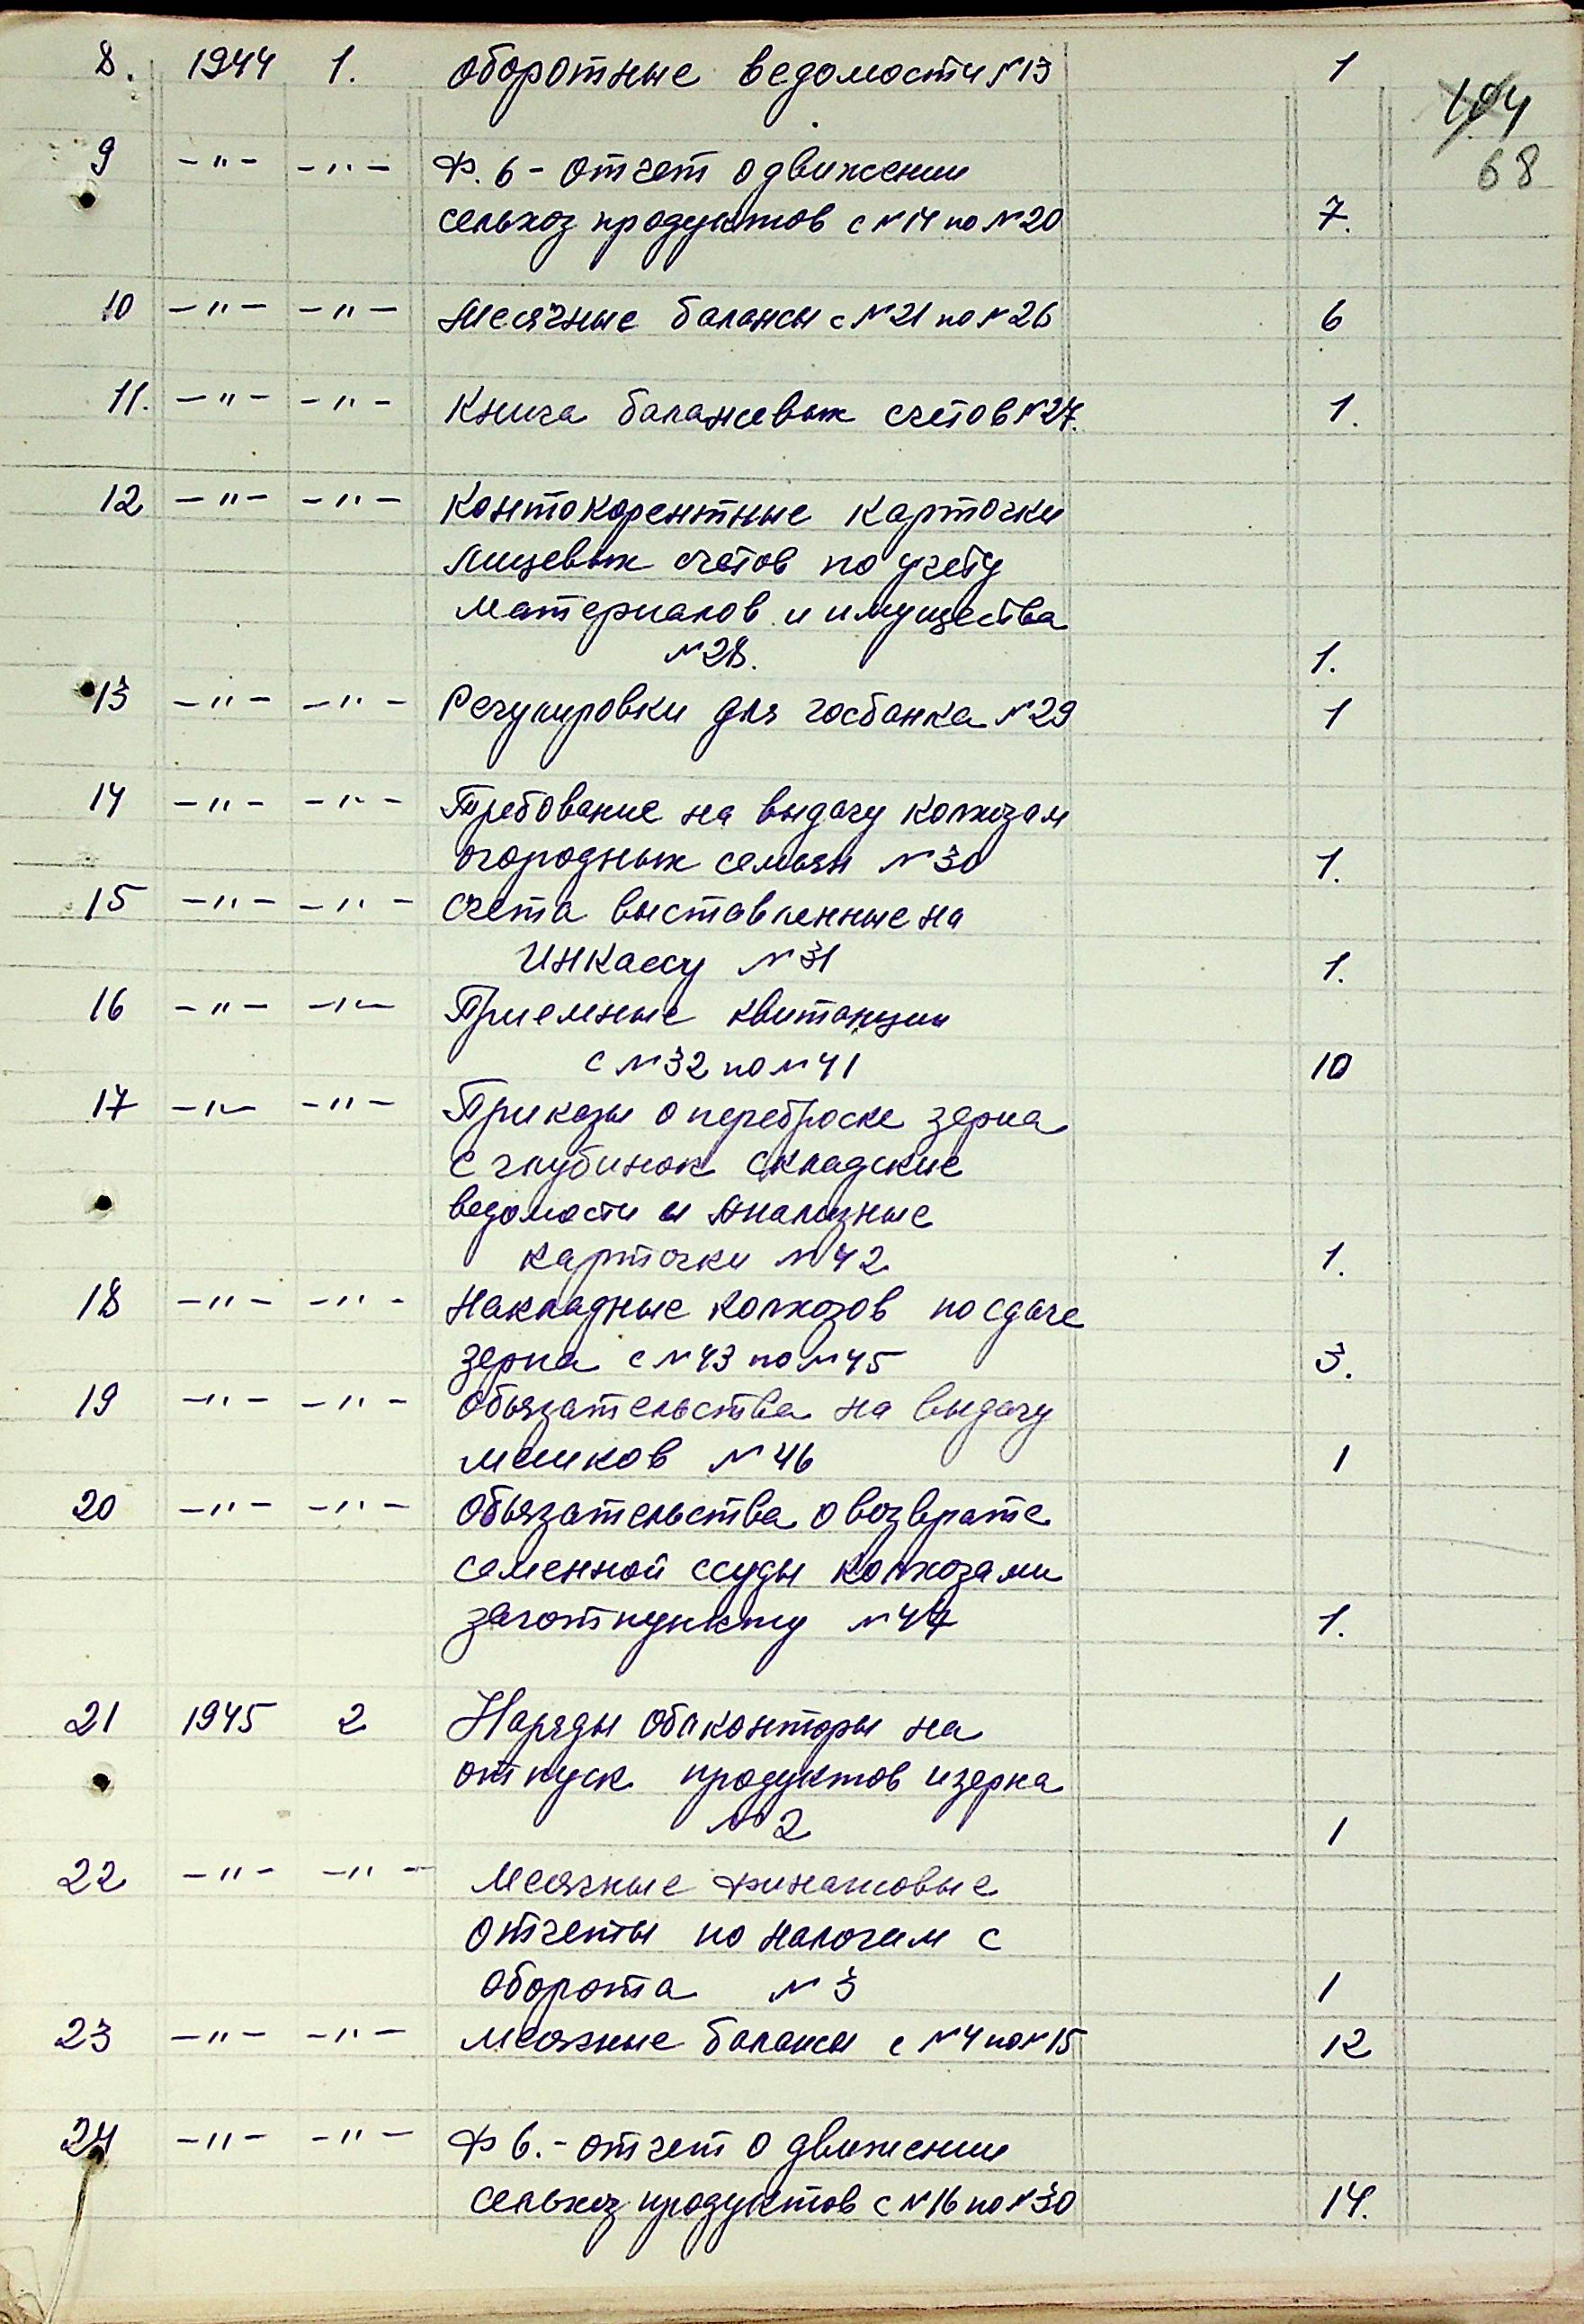 8. 1944 1. Оборотные ведомости №13 1
104
68
9 -"- -"- Ф. 6 - Отчет о движении
сельхоз продуктов с №14 по №20 7.
10 -"- -"- Месячные балансы с №21 по №26 6
11. -"- -"- Книга балансовых счетов №27. 1.
12 -"- -"- Контокорентные карточки
лицевых счетов по учету
материалов и имущества
№28. 1.
13 -"- -"- Регулировки для госбанка №29 1
14 -"- -"- Требование на выдачу колхозам
огородных семян №30 1.
15 -"- -"- Счета выставленные на
Инкассу №31 1.
16 -"- -"- Приемные квитанции
с №32 по №41 10
17 -"- -"- Приказы о переброске зерна
с глубинок складские
ведомости и Анализные
карточки №42 1.
18 -"- -"- Накладные колхозов по сдаче
зерна с №43 по №45 3.
19 -"- -"- Обязательства на выдачу
мешков №46 1
20 -"- -"- Обязательства о возврате
семенной ссуды колхозами
заготпункту №47 1.
21 1945 2 Наряды облконторы на
отпуск продуктов и зерна
№2 1
22 -"- -"- Месячные финансовые
отчеты по налогам с
оборота №3 1
23 -"- -"- Месячные балансы с №4 по №15 12
24 -"- -"- Ф 6. - отчет о движении
сельхоз продуктов с №16 по №30 14.